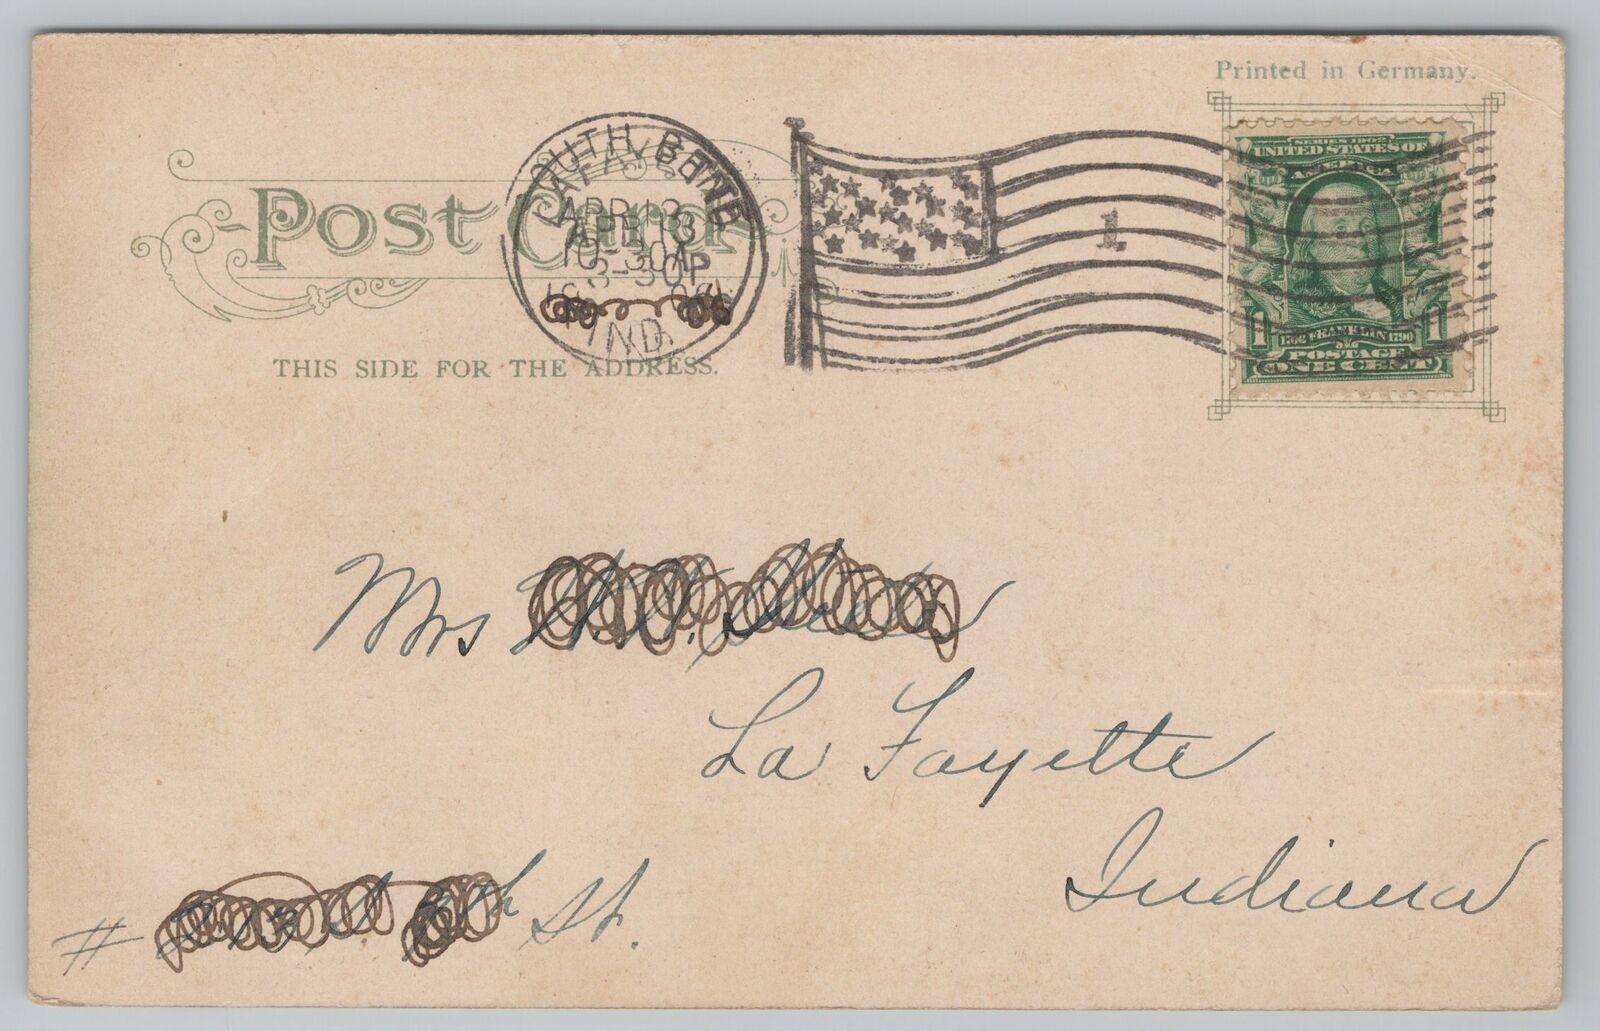 Printed in Germany.
Post Card
SOUTH BEND
LAFAYETTE
APR 13
APR 13
10-30A
3-30P
IND.
1
SERIES 1902
UNITED STATES OF
AMERICA
1 1706 FRANKLIN 1790 1
POSTAGE
ONE CENT
THIS SIDE FOR THE ADDRESS.
Mrs
La Fayette
Indiana
# St.